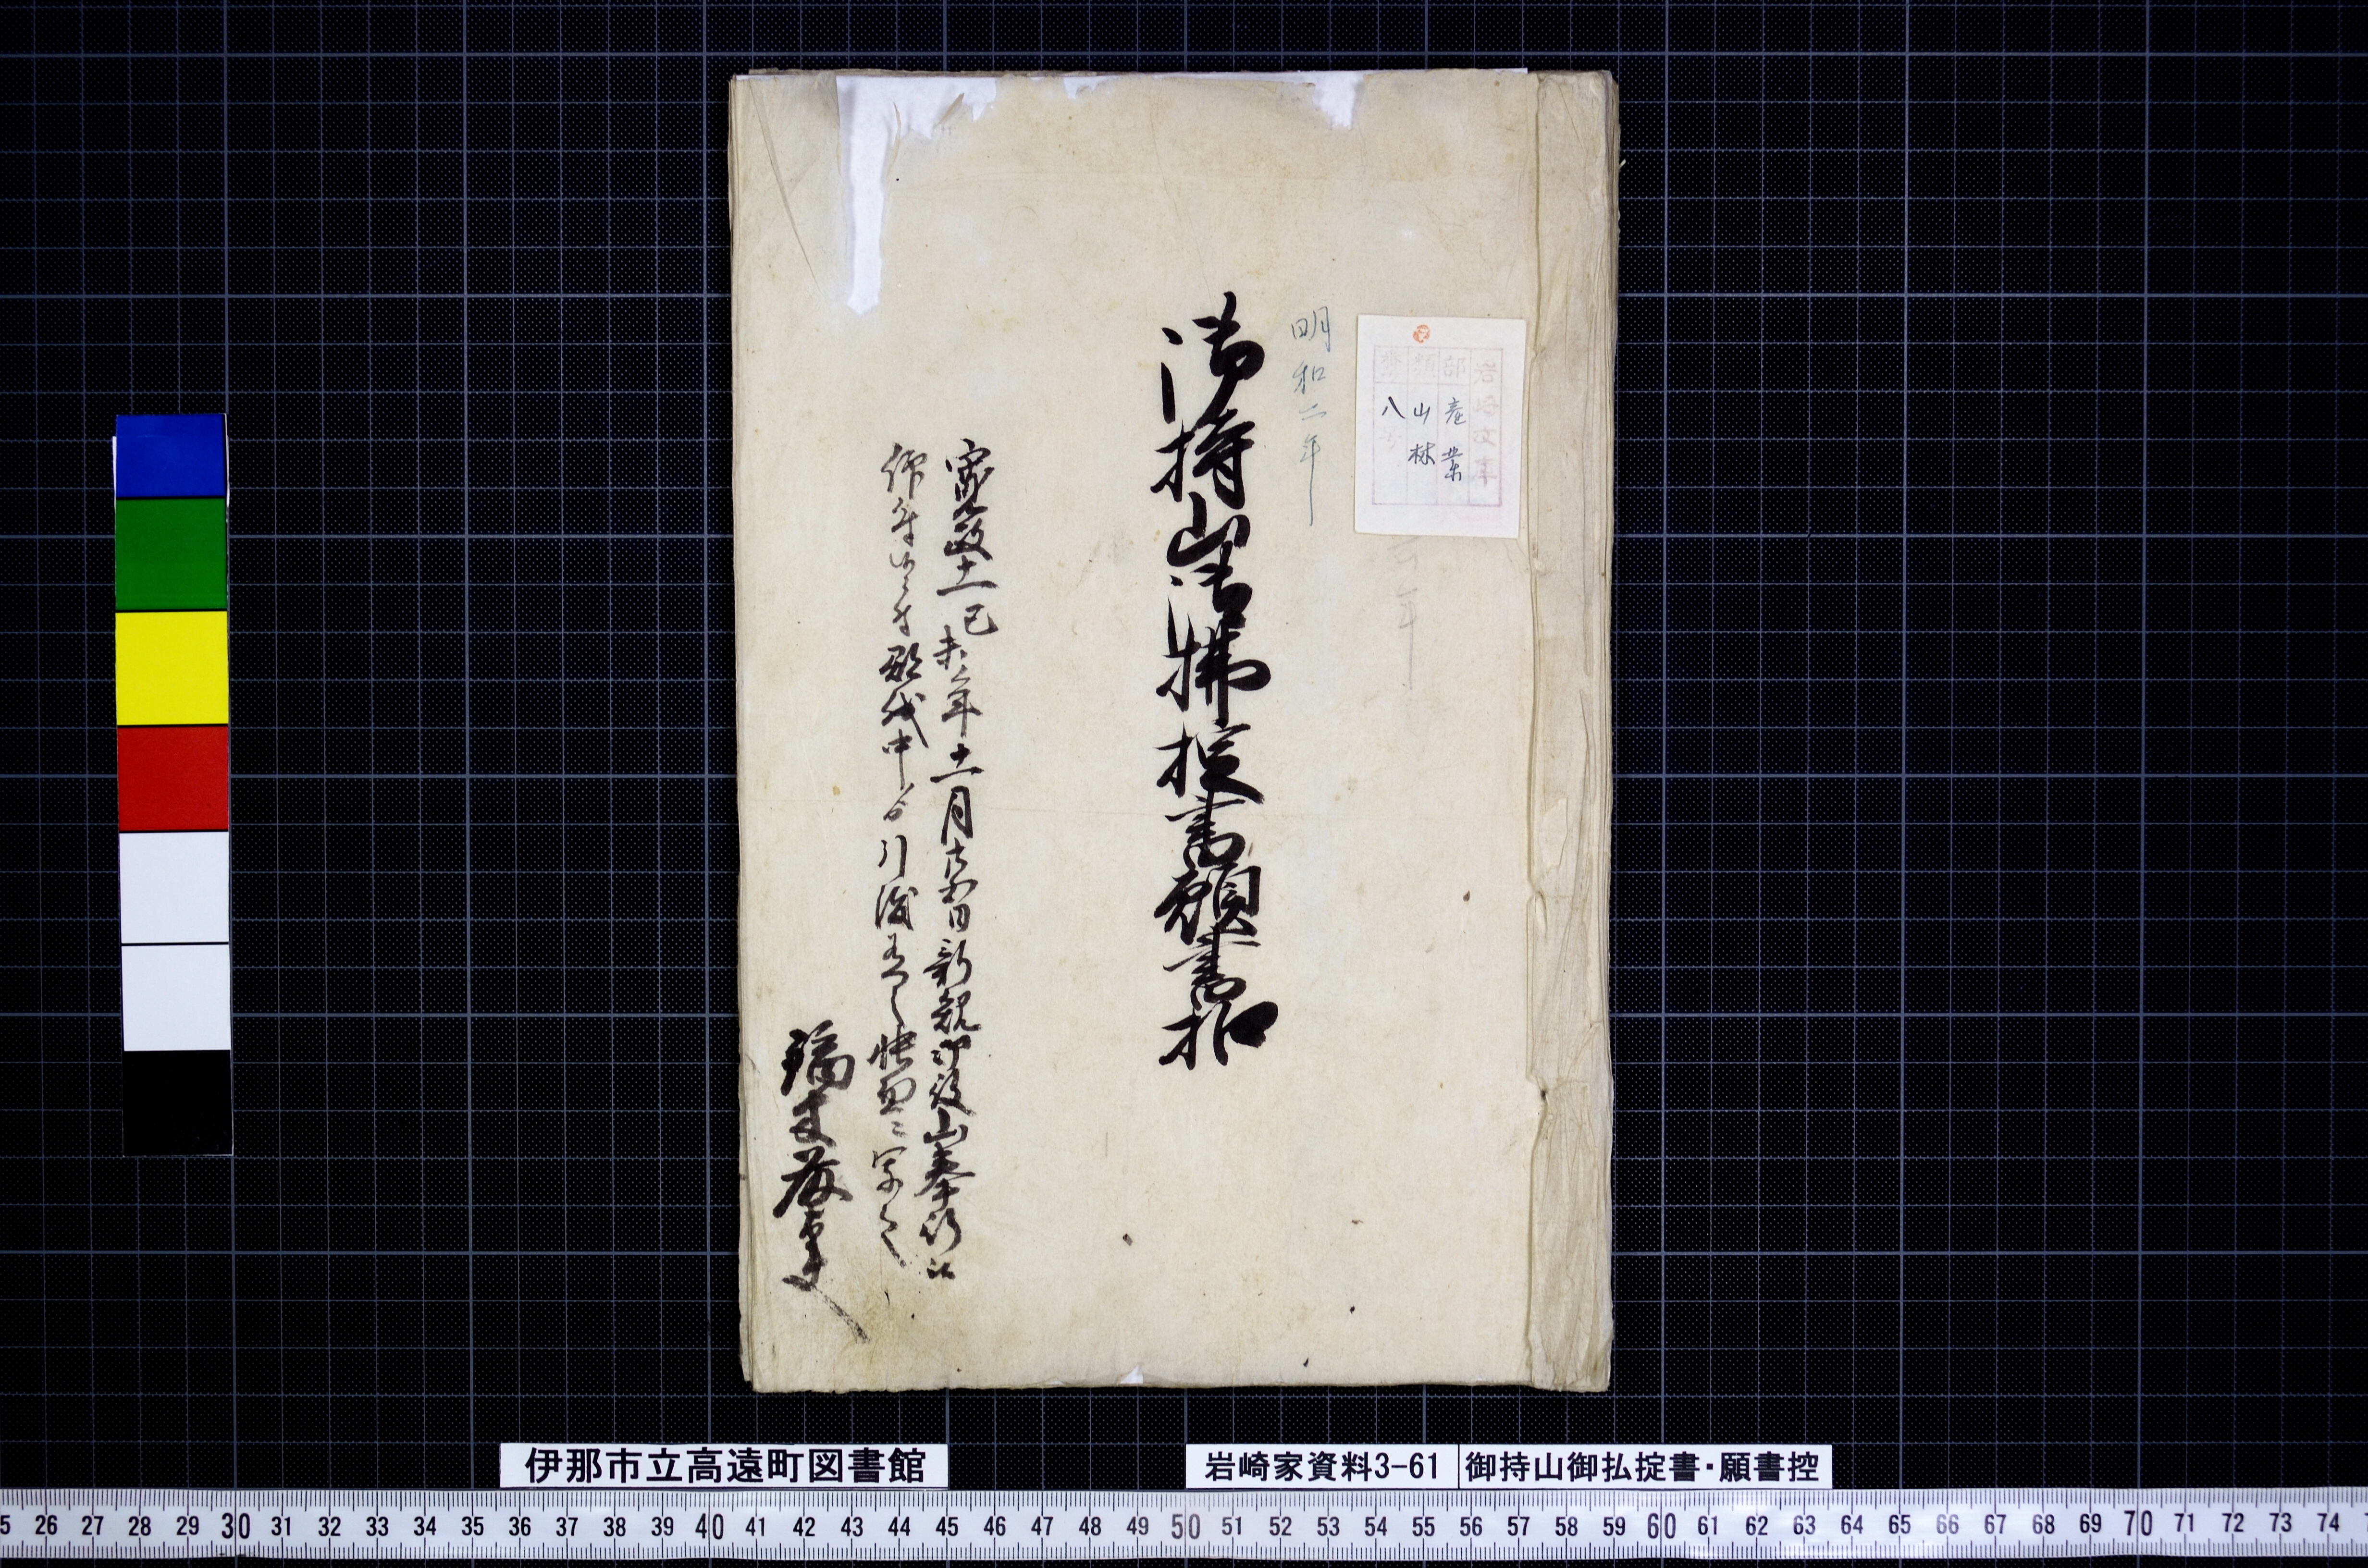 岩崎文庫
部 産業
類 山林
八号
明和二年
年
御持山御拂掟書願書扣
寛政十一己未年十一月 日新規御役山奉行江
仰付 郡代中ゟ引渡 帳面ニ 
伊那市立高遠町図書館
岩崎家資料3-61
御持山御払掟書・願書控
26 27 28 29 30 31 32 33 34 35 36 37 38 39 40 41 42 43 44 45 46 47 48 49 50 51 52 53 54 55 56 57 58 59 60 61 62 63 64 65 66 67 68 69 70 71 72 73 74